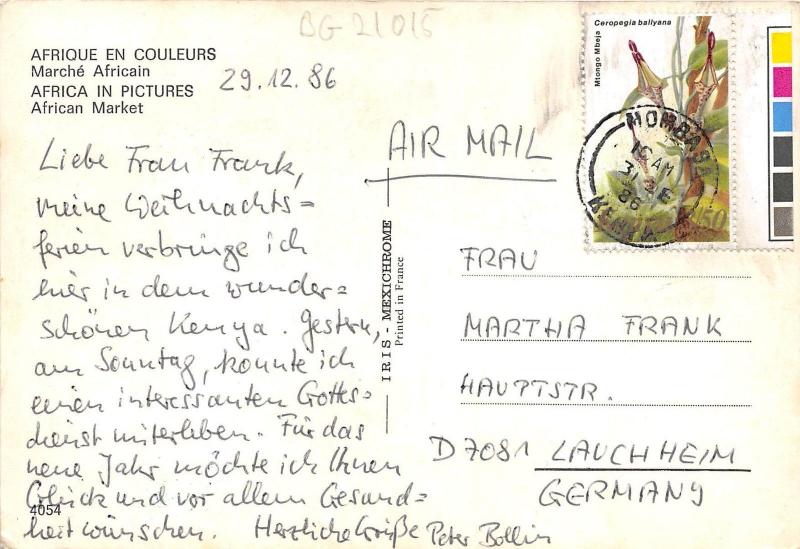 BG-21015
AFRIQUE EN COULEURS
Marché Africain
AFRICA IN PICTURES
African Market
29.12.86
AIR MAIL
Ceropegia ballyana
Mtongo Mbeja
MOMBASA
AM
31
86
KENYA
50
Liebe Frau Frank,
meine Weihnachts=
ferien verbringe ich
hier in dem wunder=
schönen Kenya. Gestern,
am Sonntag, konnte ich
einen interessanten Gottes=
dienst miterleben. Für das
neue Jahr möchte ich Ihnen
Glück und vor allem Gesund=
heit wünschen. Herzliche Grüße Peter Bollin
4054
IRIS - MEXICHROME
Printed in France
FRAU
MARTHA FRANK
HAUPTSTR.
D7081 LAUCHHEIM
GERMANY